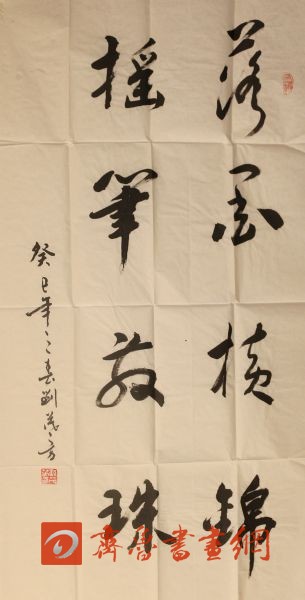 落墨橫錦
搖筆散珠
癸巳年之春劉
齊魯書畫網